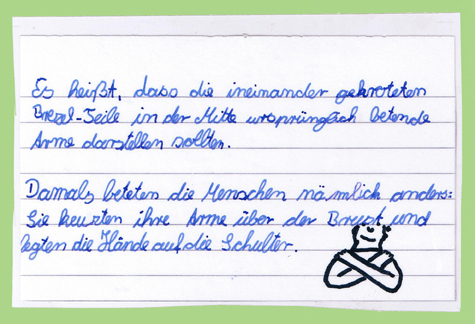 Es heißt, dass die ineinander geknoteten
Brezel-Teile in der Mitte ursprünglich betende
Arme darstellen sollten.
Damals beteten die Menschen nämlich anders:
Sie kreuzten ihre Arme über der Brust und
legten die Hände auf die Schulter.